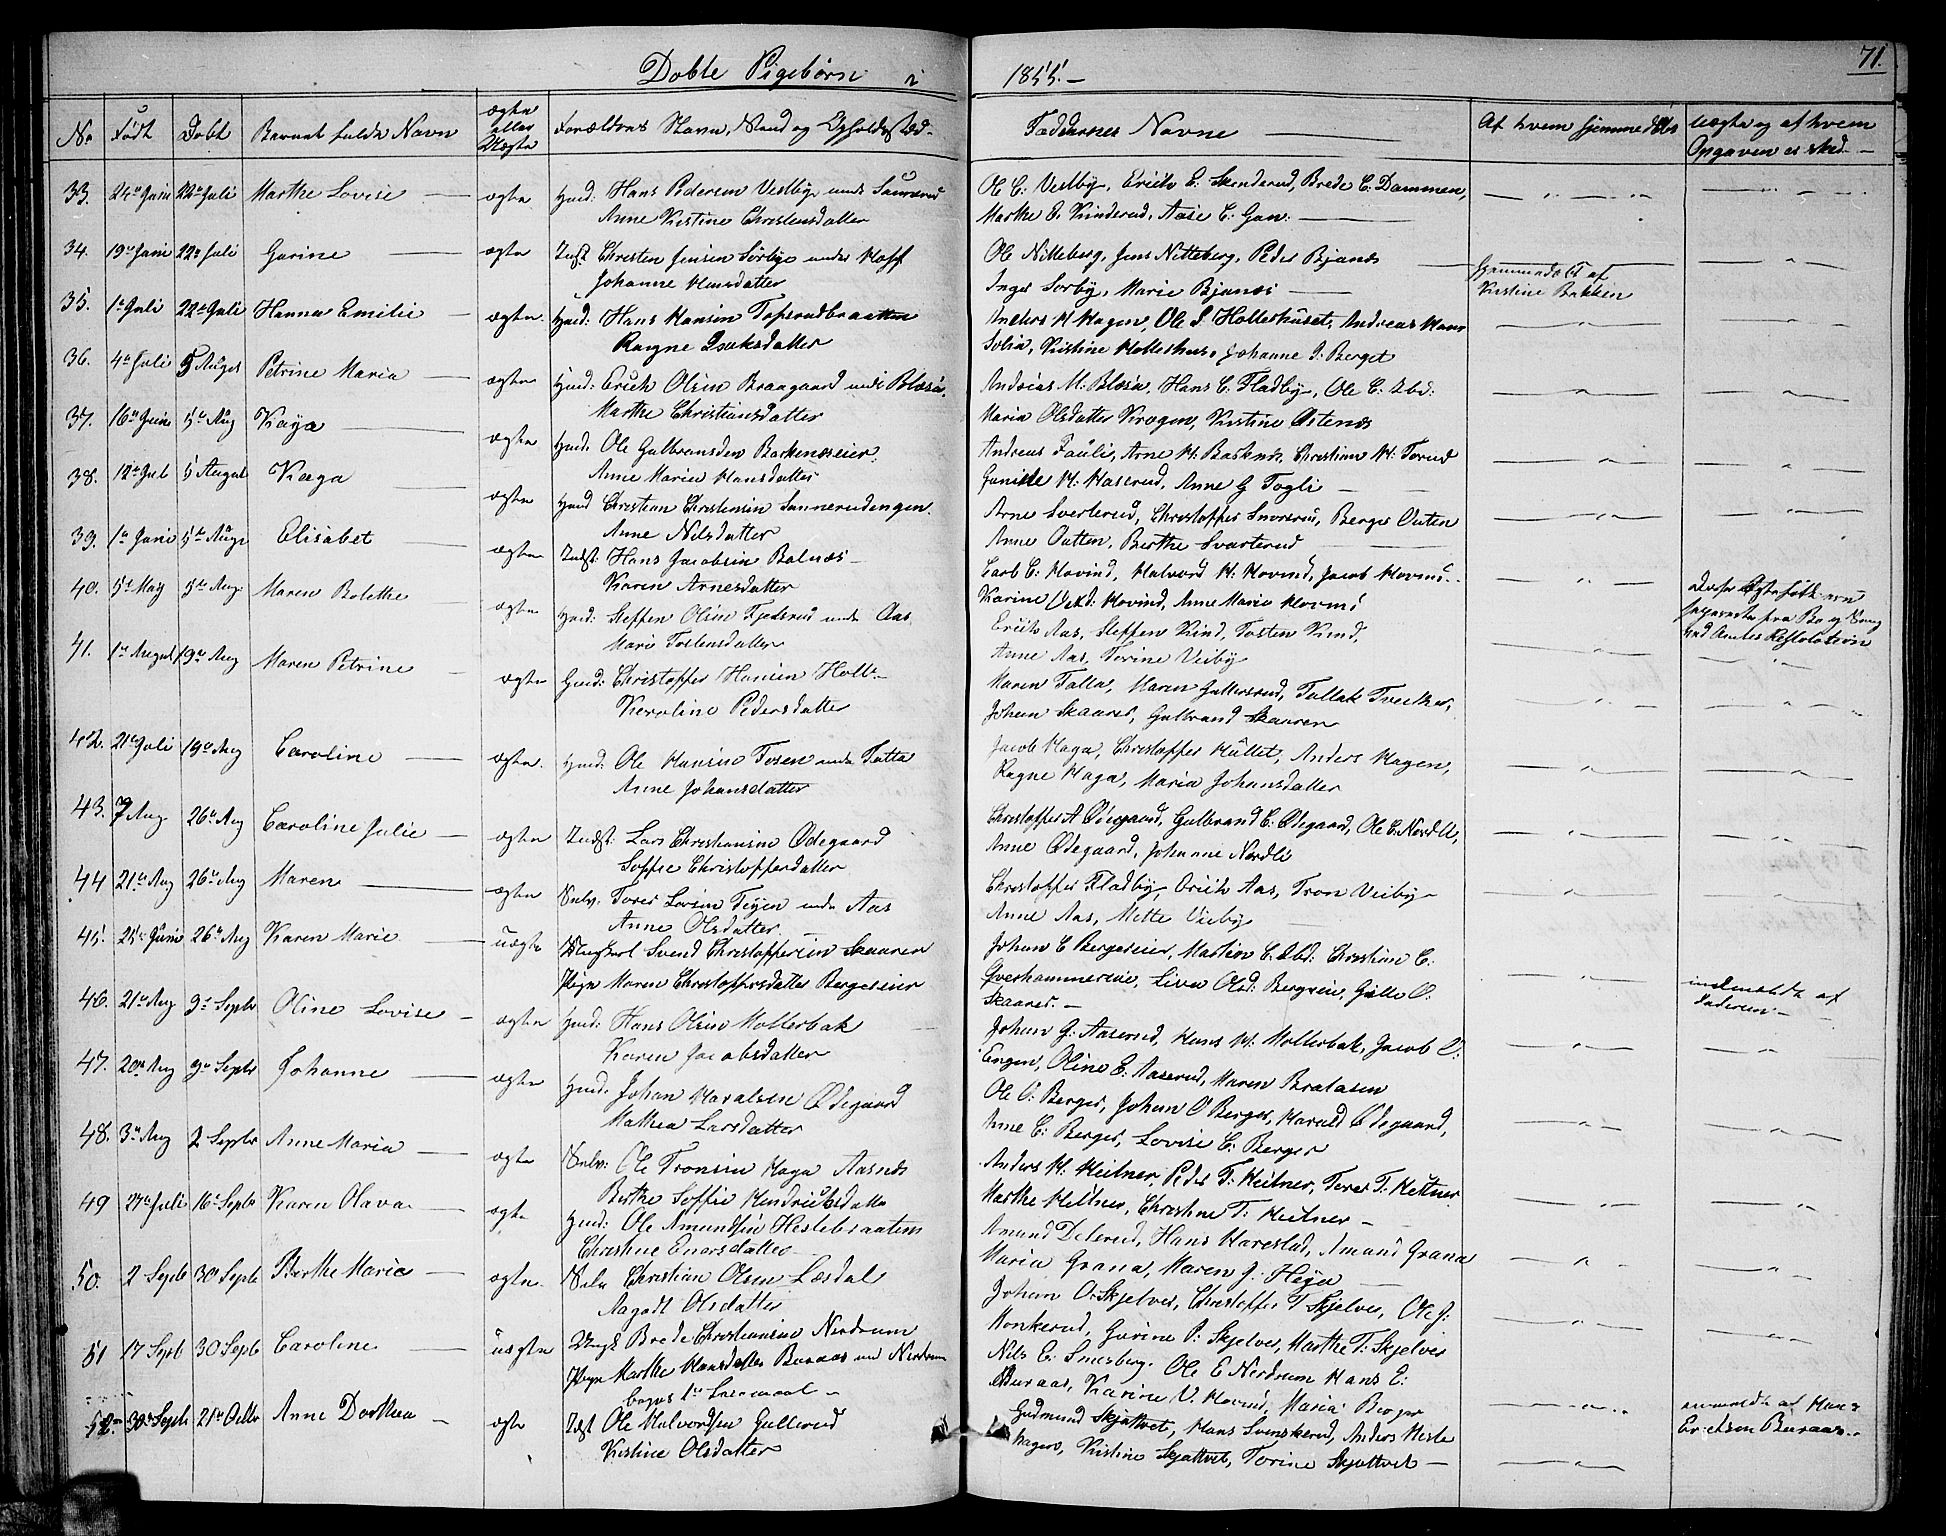 Døbte Pigebørn i 1855.
71.
No Født Døbt Barnets fulde Navn ægte eller Uægte Forældrenes Navn, Stand og Opholdssted Faddernes Navne Af hvem hjemmedøbt Uægte og af hvem
Opgaven er sked
33. 24de Juni 22de Juli Marthe Lovise ægte Huusmd: Hans Pedersen Vestby under
Anne Kirstine Christensdatter
Ole C: Vestby, Erich E: Skinderud, Brede C: Dammen,
Marthe E. Kinderud, Aase C: Gan.
34. 19de Juni 22de Juli Gurine ægte Indst Christen Jensen Sørbye under Hoff
Johanne Hansdatter
Ole Nitteberg, Jens Nitteberg, Peder Bjanes
Inger Sørby, Marie Bjanes
Hjemmedøbt af
Kirstine Bakken
35. 1de Juli 22de Juli Hanna Emilie ægte Hans Hansen Topsrudbraatten
Ragne Isaksdatter
Anders H Hagen, Ole S Holleshuset, Andreas Hans
Kirstine Holleshus, Johanne J: Berget
36. 4de Juli 5 August Petrine Maria ægte Erich Olsen Braagaard under
Marthe Christiansdatter
Andreas M: Hans C. Fladby, Ole C. Ibd:
Maria Olsdatter Krogen, Kirstine Østenes
37. 16de Juni 5te Aug Kaya ægte Ole Gulbrandsen Barkenæseier
Anne Maria Hansdatter
Andreas Fauli, Arne H. Christian H: Torud
H: Haserud, Anne G Fogli
38. 12te Juli 5 August Kaya ægte Christian Christensen Sannerudengen
Anne Nilsdatter
Arne Svarterud, Christoffer Berger Outen
Anne Outten, Berthe Svarterud
39. 1de Juni 5te Augs Elisabet ægte Indst: Hans Jacobsen Balnæs
Karen Arnesdatter
Carl C: Hovind, Halvord H: Hovind, Jacob Hovind
Karine Hovind, Anne Maria Hovind
40. 5te May 5te Aug Maren Bolethe ægte Steffen Olsen under Aas
Mari Tostensdatter
Erich Aas, Steffen Kind, Tosten Kind,
Anne Aas, Torine Veiby
41. 1de August 19de Aug Maren Petrine ægte Christoffer Hansen Holt
Karoline Pedersdatter
Maren Falla, Maren Gullersrud, Tallak Tveiter,
Johan Skaarer, Gulbrand Skaaren
42. 21de Juli 19de Aug Caroline ægte Ole Hansen Tosen under Tutta
Anne Johansdatter
Jacob Haga, Christoffer Hüttet, Anders Hagen,
Ragne Haga, Maria Johansdatter
43. 7 Aug 26de Aug Caroline Julie ægte Indst: Lars Christiansen Ødegaard
Soffie Christoffersdatter
Christoffer A Ødegaard, Gulbrand C: Ødegaard, Ole C: Nordli,
Anne Ødegaard, Johanne Nordli
44 21de Aug 26de Aug Maren ægte Selv: Tores Larsen under Aas
Anne Olsdatter
Christoffer Fladby, Erich Aas, Tron Veiby
Anne Aas, Mette Vieby
45. 25de Juni 26de Aug Karen Marie uægte Ungkarl Svend Christoffersen Skaaren
Pige Maren Christoffersdatter Bergerseier
Johan C Bergerseier, Martin C. Ibd: Christian C:
Qverhammereie, Lisa Olsd: Bergseie, O.
Skaarer.
indmeldt af
Faderen
46. 21de Aug 9de Septbr Oline Lovise ægte Hans Olsen Mollerbak
Karen Jacobsdatter
Johan G: Aaserud, Hans H: Mollerbak, Jacob O:
Engen, Oline E. Aaserud, Maren Bratasen
47. 20de Aug 9de Septbr Johanne ægte Johan Haralsen Ødegaard
Mathea Larsdatter
Ole O: Berger, Johan O Berger, Harald Ødegaard,
Anne C: Berger, Lovise C: Berger
48. 3de Aug 2 Septbr Anne Maria ægte Selv: Ole Tronsen Haga Aasnes
Berthe Soffie Hendriksdatter
Anders H: Heitner, Peder T: Heitner, Tores T: Heitner
Marthe Heitner, Christine T: Heitner
49 27de Juli 16de Septbr Karen Olava ægte Ole Amundsen Heslebraaten
Christine Enersdatter
Amand Delerud, Hans Harestad, Amand Grana
Maria Grana, Maren J: Heja
50. 2 Septb 30te Septb Berthe Maria ægte Selv Christian Olsen Læsdal
Aagodt Olsdatter
Johan O: Skjelver, Christoffer T Skjelver, Ole J:
Honkerud, Gurine P: Skjelver, Marthe T. Skjelver
51 17 Septb 30 Septb Caroline uægte Ungk Brede Christiansen Nerdrum
Pige Marthe Hansdatter Buraas under Nerdrum
begges 1te Leiermaal
Nils E: Smesberg, Ole E Nerdrum Hans E:
Buraas, Karine V. Hovind, Maria Berger
52. 30te Septb 21de Octbr Anne Dorthea ægte Indst Ole Halvordsen Gullerud
Kirstine Olsdatter
Gudmund Skjattvet, Hans Svenskerud, Anders Hesle
hagen, Kirstine Skjattvet, Torine Skjattvet
anmeldt af Hans
Erichsen Buraas